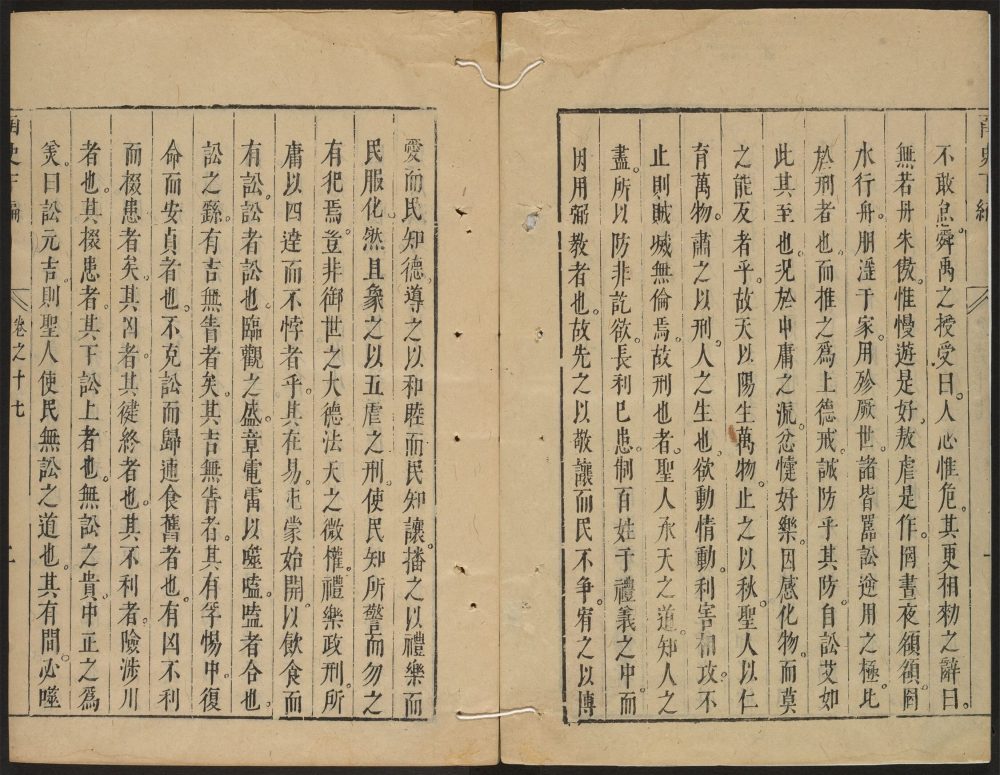 不敢怠。舜禹之授受曰。人心惟危。其更相勑之辭曰。
無若丹朱傲。惟慢遊是好。敖虐是作。罔晝夜頟頟。罔
水行舟。朋淫于家。用殄厥世。諸皆嚚訟逆用之極。比
於刑者也。而推之爲上德。戒誠防乎其防自訟艾如
此其至也。况於中庸之流。忿懥好樂。因感化物。而莫
之能反者乎。故天以陽生萬物。止之以秋。聖人以仁
育萬物。肅之以刑。人之生也。欲動情動。利害相攻。不
止則賊滅無倫焉。故刑也者。聖人承天之道。知人之
盡。所以防非訖欲。長利已患。制百姓于禮義之中。而
因用弼教者也。故先之以敬讓而民不爭。宥之以博
愛而民知德。導之以和睦而民知讓。播之以禮樂而
民服化。然且象之以五虐之刑。使民知所警而勿之
有犯焉。豈非御世之大德。法天之微權。禮樂政刑。所
庸以四達而不悖者乎。其在易。屯蒙始開。以飲食而
有訟。訟者訟也。臨觀之盛。章電雷以噬嗑。嗑者合也。
訟之繇。有吉無眚者矣。其吉無眚者。其有孚惕中。復
命而安貞者也。不克訟而歸逋食舊者也。有凶不利
而掇患者矣。其凶者。其健終者也。其不利者。險涉川
者也。其掇患者。其下訟上者也。無訟之貴。中正之爲
美。曰訟元吉。則聖人使民無訟之道也。其有間。必噬
卷之十七